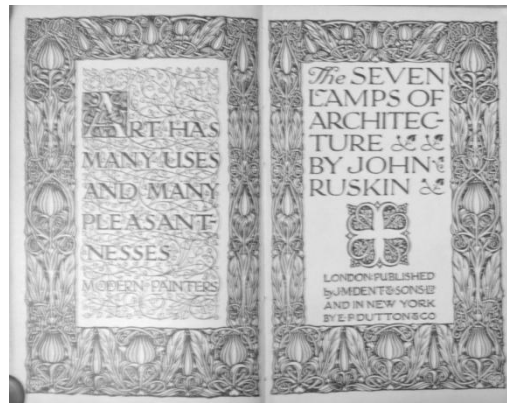 ART HAS
MANY USES
AND MANY
PLEASANT-
NESSES
MODERN PAINTERS
The SEVEN
LAMPS OF
ARCHITEC-
TURE
BY JOHN
RUSKIN
LONDON:PUBLISHED
by J.M.DENT & SONS LTD
AND IN NEW YORK
BY E.P DUTTON & CO